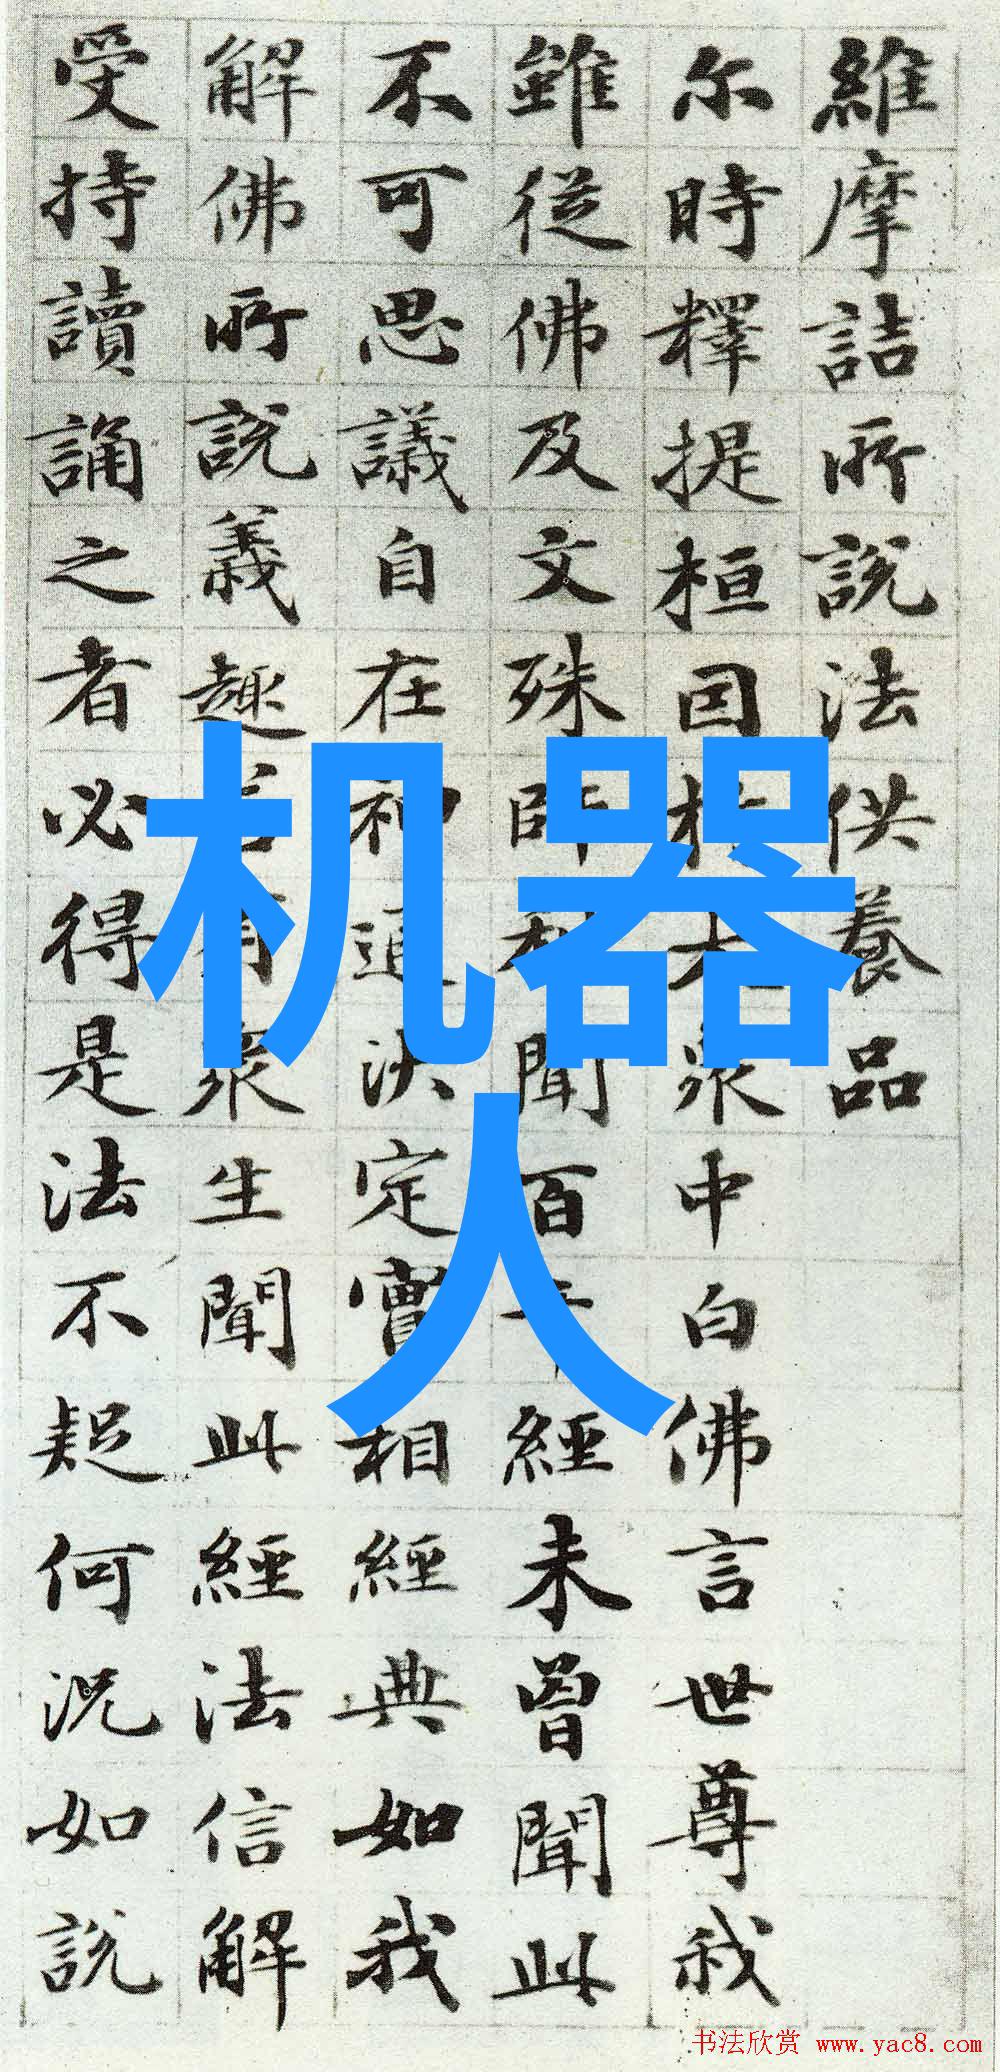 維摩詰所說法供養品
尔時釋提桓因於大衆中白佛言世尊我
雖從佛及文殊師利聞百千經未曾聞此
不可思議自在神通決定實相經典如我
解佛所說義趣若有衆生聞此經法信解
受持讀誦之者必得是法不疑何況如說
机器
人
书法欣赏 www.yac8.com